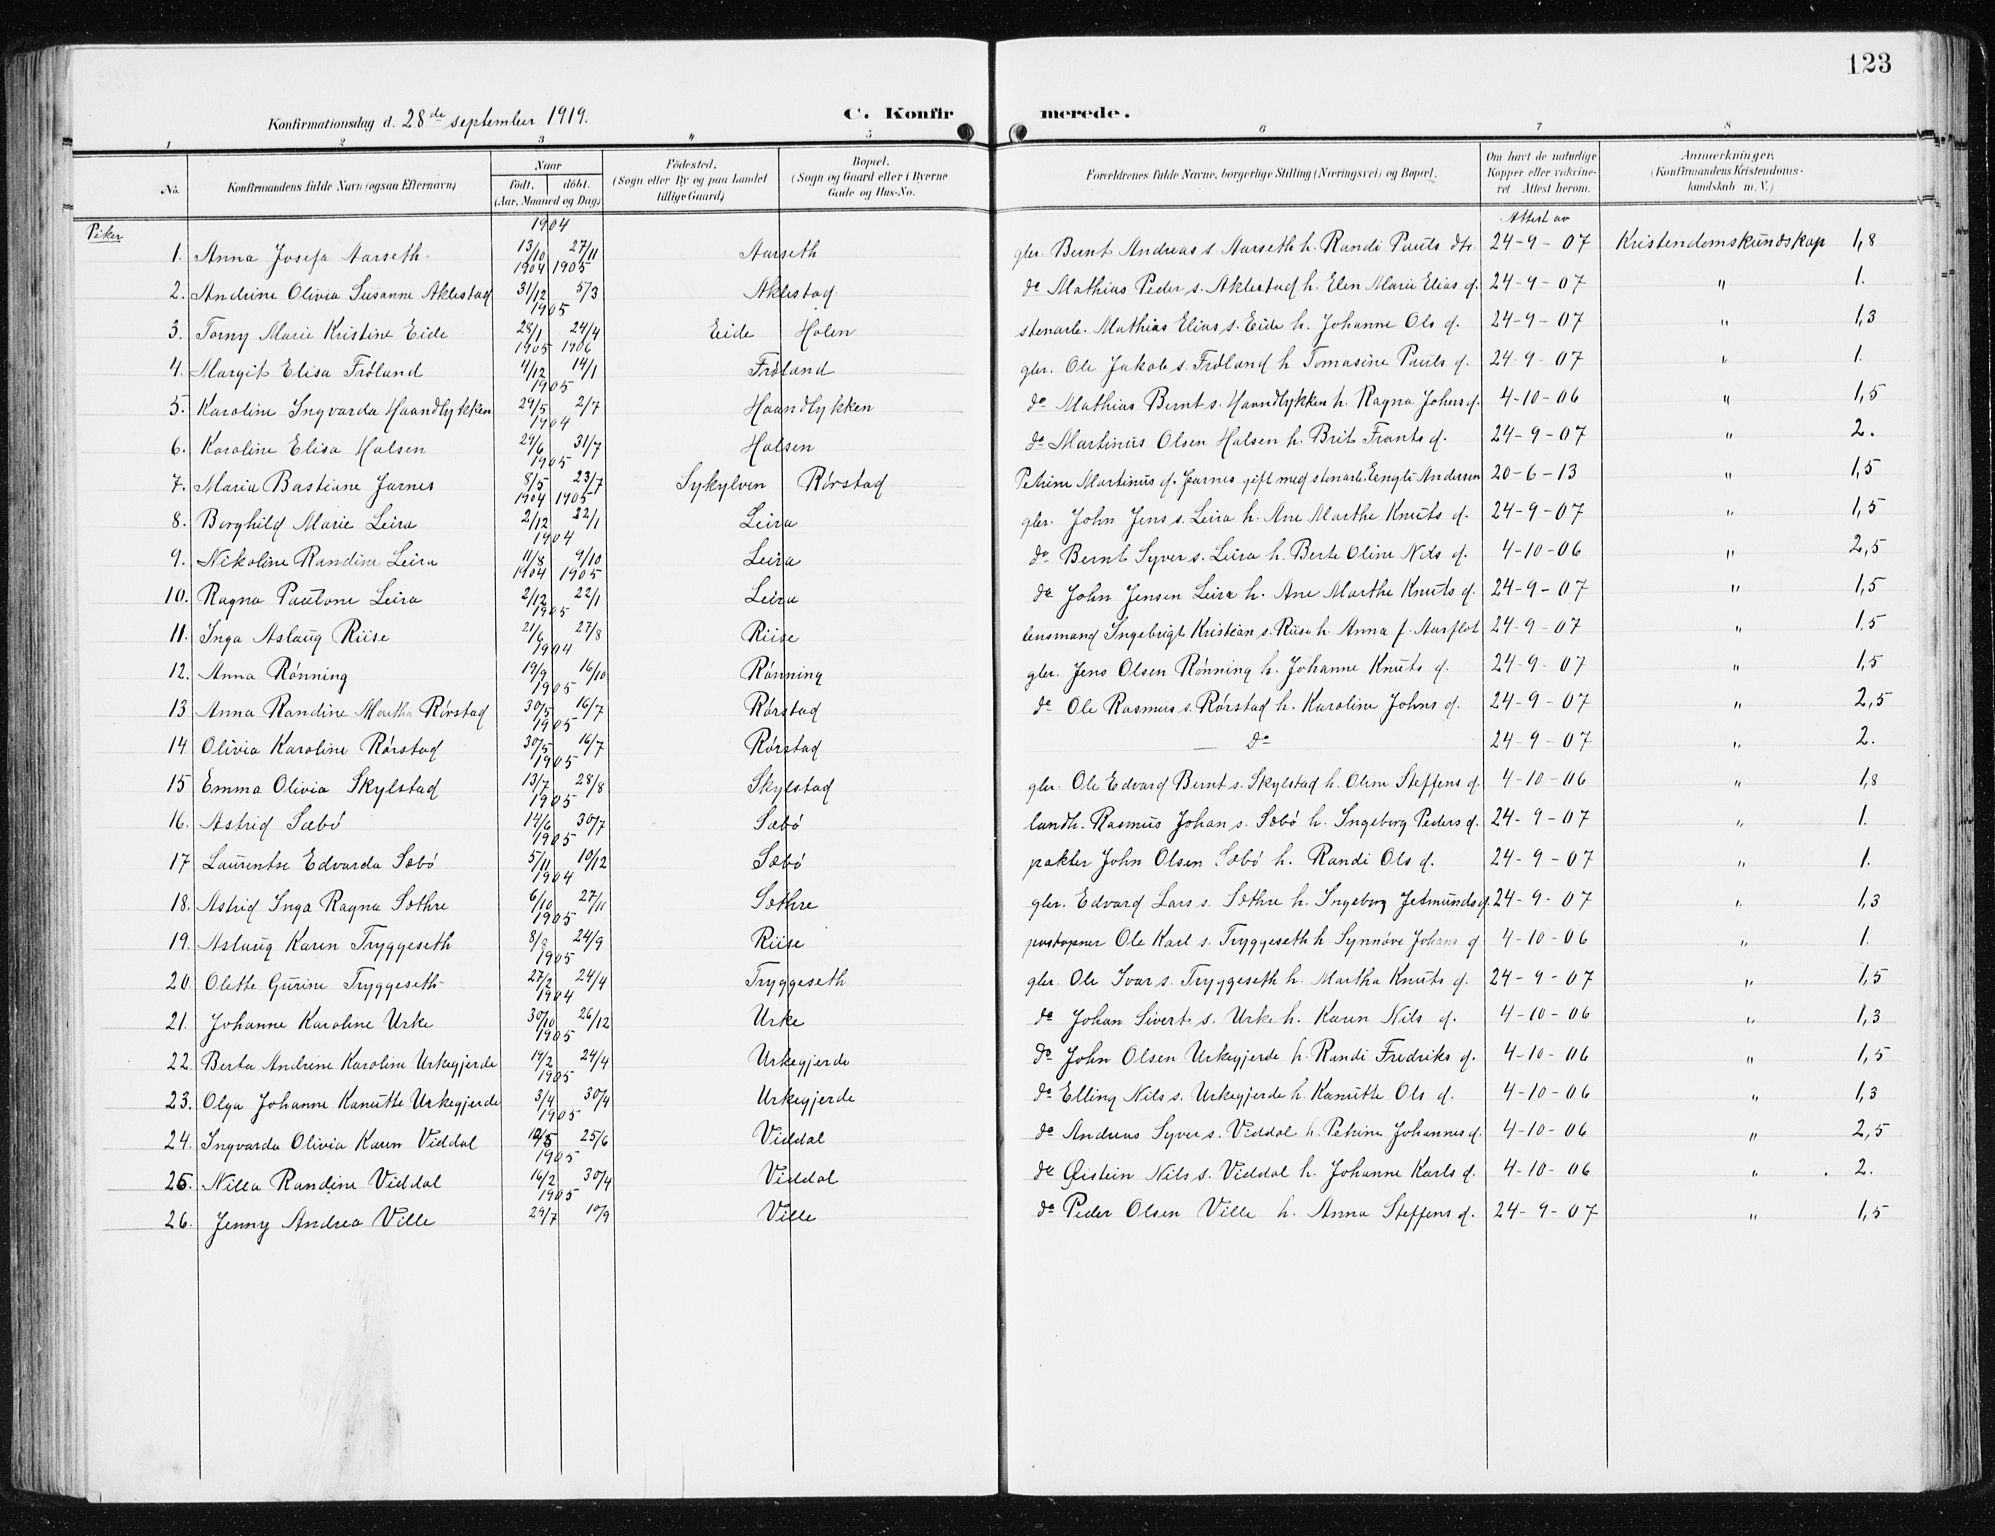 123
Konfirmationsdag d. 28de september 1919.
C. Konfirmerede.
1 2 3 4 5 6 7 8
No. Konfirmandens fulde Navn (ogsaa Efternavn) Naar født, døbt. (Aar, Maaned og Dag) Fødested. (Sogn eller By og paa Landet tillige Gaard) Bopæl. (Sogn og Gaard eller i Byerne Gade og Hus-No. Forældrenes fulde Navne, borgerlige Stilling (Næringsvei) og Bopæl. Om havt de naturlige Kopper eller vakcineret Attest herom. Anmerkninger. (Konfirmandens Kristendomskundskab m. V.)
Piker 1904 Attest av
1. Anna Josefa Aarseth 13/10 27/11 Aarseth gbr. Bernt Andreas s. Aarseth h. Randi Pauls dtr 24-9-07 Kristendomskundskap 1,8
1904 1905
2. Andrine Olivia Susanne Aklestad 31/12 5/3 Aklestad do Mathias Peder s. Aklestad h. Elen Marie Elias d. 24-9-07 " 1.
1905
3. Torny Marie Kristine Eide 28/1 24/4 Eide Holen stenarb. Mathias Elias s. Eide h. Johanne Ols d. 24-9-07 " 1,3
1905 1906
4. Margit Elisa Frøland 4/12 14/1 Frøland gbr. Ole Jakob s. Frøland h Tomasine Pauls d. 24-9-07 " 1.
1905
5. Karoline Ingvarda Haandlykken 29/5 2/7 Haandlykken do Mathias Bernt s. Haandlykken h. Ragna Johns d. 4-10-06 " 1,5
1904
6. Karoline Elisa Halsen 29/6 31/7 Halsen do Martinus Olsen Halsen h. Brit Frants d. 24-9-07 " 2.
1905
7. Maria Bastiane Jarnes 8/5 23/7 Sykylven Rørstad Petrine Martinus d. Jarnes gift med stenarb. Engli Andersen 20-6-13 " 1,5
1904 1905
8. Borghild Marie Leira 2/12 22/1 Leira gbr. John Jens s. Leira h. Ane Marthe Knuts d. 24-9-07 " 1,5
1904
9. Nikoline Randine Leira 11/8 9/10 Leira do Bernt Syver s. Leira h. Berte Oline Nils d. 4-10-06 " 2,5
1904 1905
10. Ragna Paulone Leira 2/12 22/1 Leira do John Jensen Leira h. Ane Marthe Knuts d. 24-9-07 " 1,5
1905
11. Inga Aslaug Riise 21/6 27/8 Riise lensmand Ingebrigt Kristian s. Riise h. Anna f. Aarflot 24-9-07 " 1,5
1904
12. Anna Rønning 19/9 16/10 Rønning gbr. Jens Olsen Rønning h. Johanne Knuts d. 24-9-07 " 1,5
1905
13 Anna Randine Martha Rørstad 30/5 16/7 Rørstad do Ole Rasmus s. Rørstad h. Karoline Johns d. 24-9-07 " 2,5
1905
14 Olivia Karoline Rørstad 30/5 16/7 Rørstad — do 24-9-07 " 2.
1905
15 Emma Olivia Skylstad 13/7 28/8 Skylstad gbr. Ole Edvard Bernt s. Skylstad h. Oline Steffens d. 4-10-06 " 1,8
1905
16. Astrid Sæbø 14/6 30/7 Sæbø landh. Rasmus Johan s. Sæbø h. Ingeborg Peders d. 24-9-07 " 1.
1905
17 Laurentse Edvarda Sæbø 5/11 10/12 Sæbø pakter John Olsen Sæbø h. Randi Ols d. 24-9-07 " 1.
1904
18. Astrid Inga Ragna Sæthre 6/10 27/11 Sæthre gbr. Edvard Lars s. Sæthre h. Ingeborg Jetmunds d. 24-9-07 " 1,3
1905
19. Aslaug Karen Tryggeseth 8/8 24/9 Riise postopner Ole Karl s. Tryggeseth h. Synnøve Johans d 4-10-06 " 1.
1905
20 Olette Gurine Tryggeseth 27/2 24/4 Tryggeseth gbr. Ole Ivar s. Tryggeseth h. Martha Knuts d. 24-9-07 " 1,5
1904
21. Johanne Karoline Urke 30/10 26/12 Urke do Johan Sivert s. Urke h. Karen Nils d. 4-10-06 " 1,3
1905
22. Berta Andrine Karoline Urkegjerde 14/2 24/4 Urkegjerde do John Olsen Urkegjerde h. Randi Fredriks d. 4-10-06 " 1,5
1905
23. Olga Johanne Kanutte Urkegjerde 3/4 30/4 Urkegjerde do Elling Nils s. Urkegjerde h. Kanutte Ols d. 4-10-06 " 1,3
1905
24. Ingvarda Olivia Karen Viddal 10/5 25/6 Viddal do Andreas Syver s. Viddal h. Petrine Johannes d. 4-10-06 " 2,5
1905
25. Nilla Randine Viddal 16/2 30/4 Viddal do Øistein Nils s. Viddal h. Johanne Karls d. 4-10-06 " 2.
1905
26. Jenny Andrea Ville 29/7 10/9 Ville do Peder Olsen Ville h. Anna Steffens d. 24-9-07 " 1,5